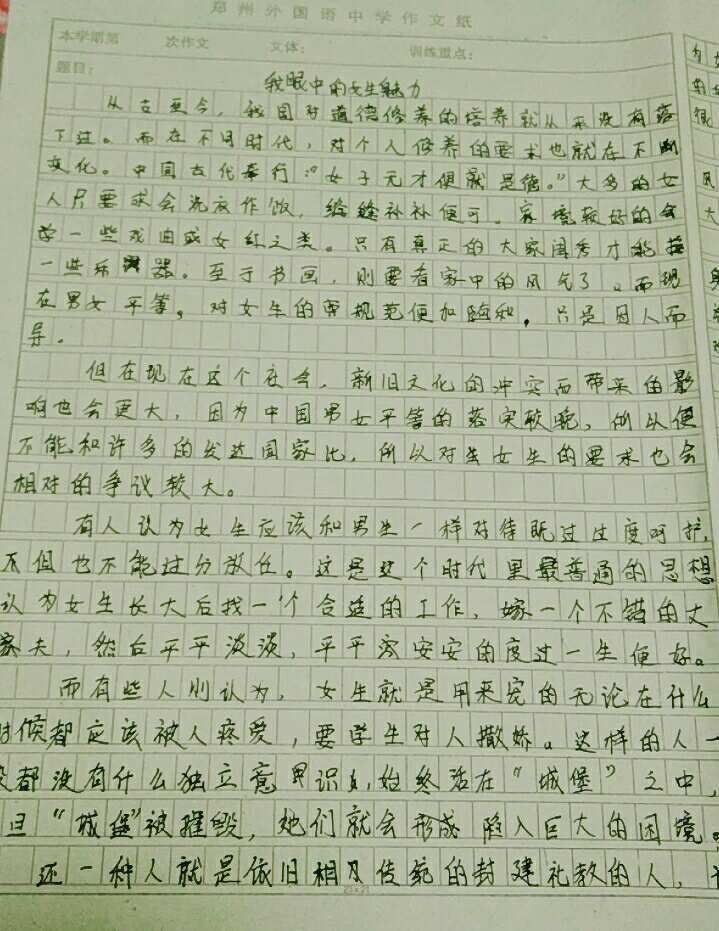 郑州外国语中学作文纸
本学期第 次作文 文体： 训练重点：
题目：
我眼中的女生魅力
从古至今，我国对道德修养的培养就从来没有落
下过。而在不同时代，对个人修养的要求也就在不断
变化。中国古代奉行："女子无才便是德。"大多的女
人只要求会洗衣作饭，缝缝补补便可，家境较好的会
学一些戏曲或女红之类。只有真正的大家闺秀才能接
一些乐器。至于书画，则要看家中的风气了。而现
在男女平等，对女生的规范便加随和，只是因人而
异。
但在现在这个社会，新旧文化的冲突而带来的影
响也会更大，因为中国男女平等的落实较晚，所以便
不能和许多的发达国家比，所以对女生的要求也会
相对的争议较大。
有人认为女生应该和男生一样对待既过过度呵护，
不但也不能过分放任。这是这个时代里最普通的思想
认为女生长大后找一个合适的工作，嫁一个不错的丈
夫，然后平平淡淡，平平安安的度过一生便好。
而有些人则认为，女生就是用来宠的无论在什么
时候都应该被人疼爱，要学生对人撒娇。这样的人一
般都没有什么独立意识，始终活在"城堡"之中，
旦"城堡"被摧毁，她们就会形成陷入巨大的困境。
还一种人就是依旧相及传统的封建礼教的人，